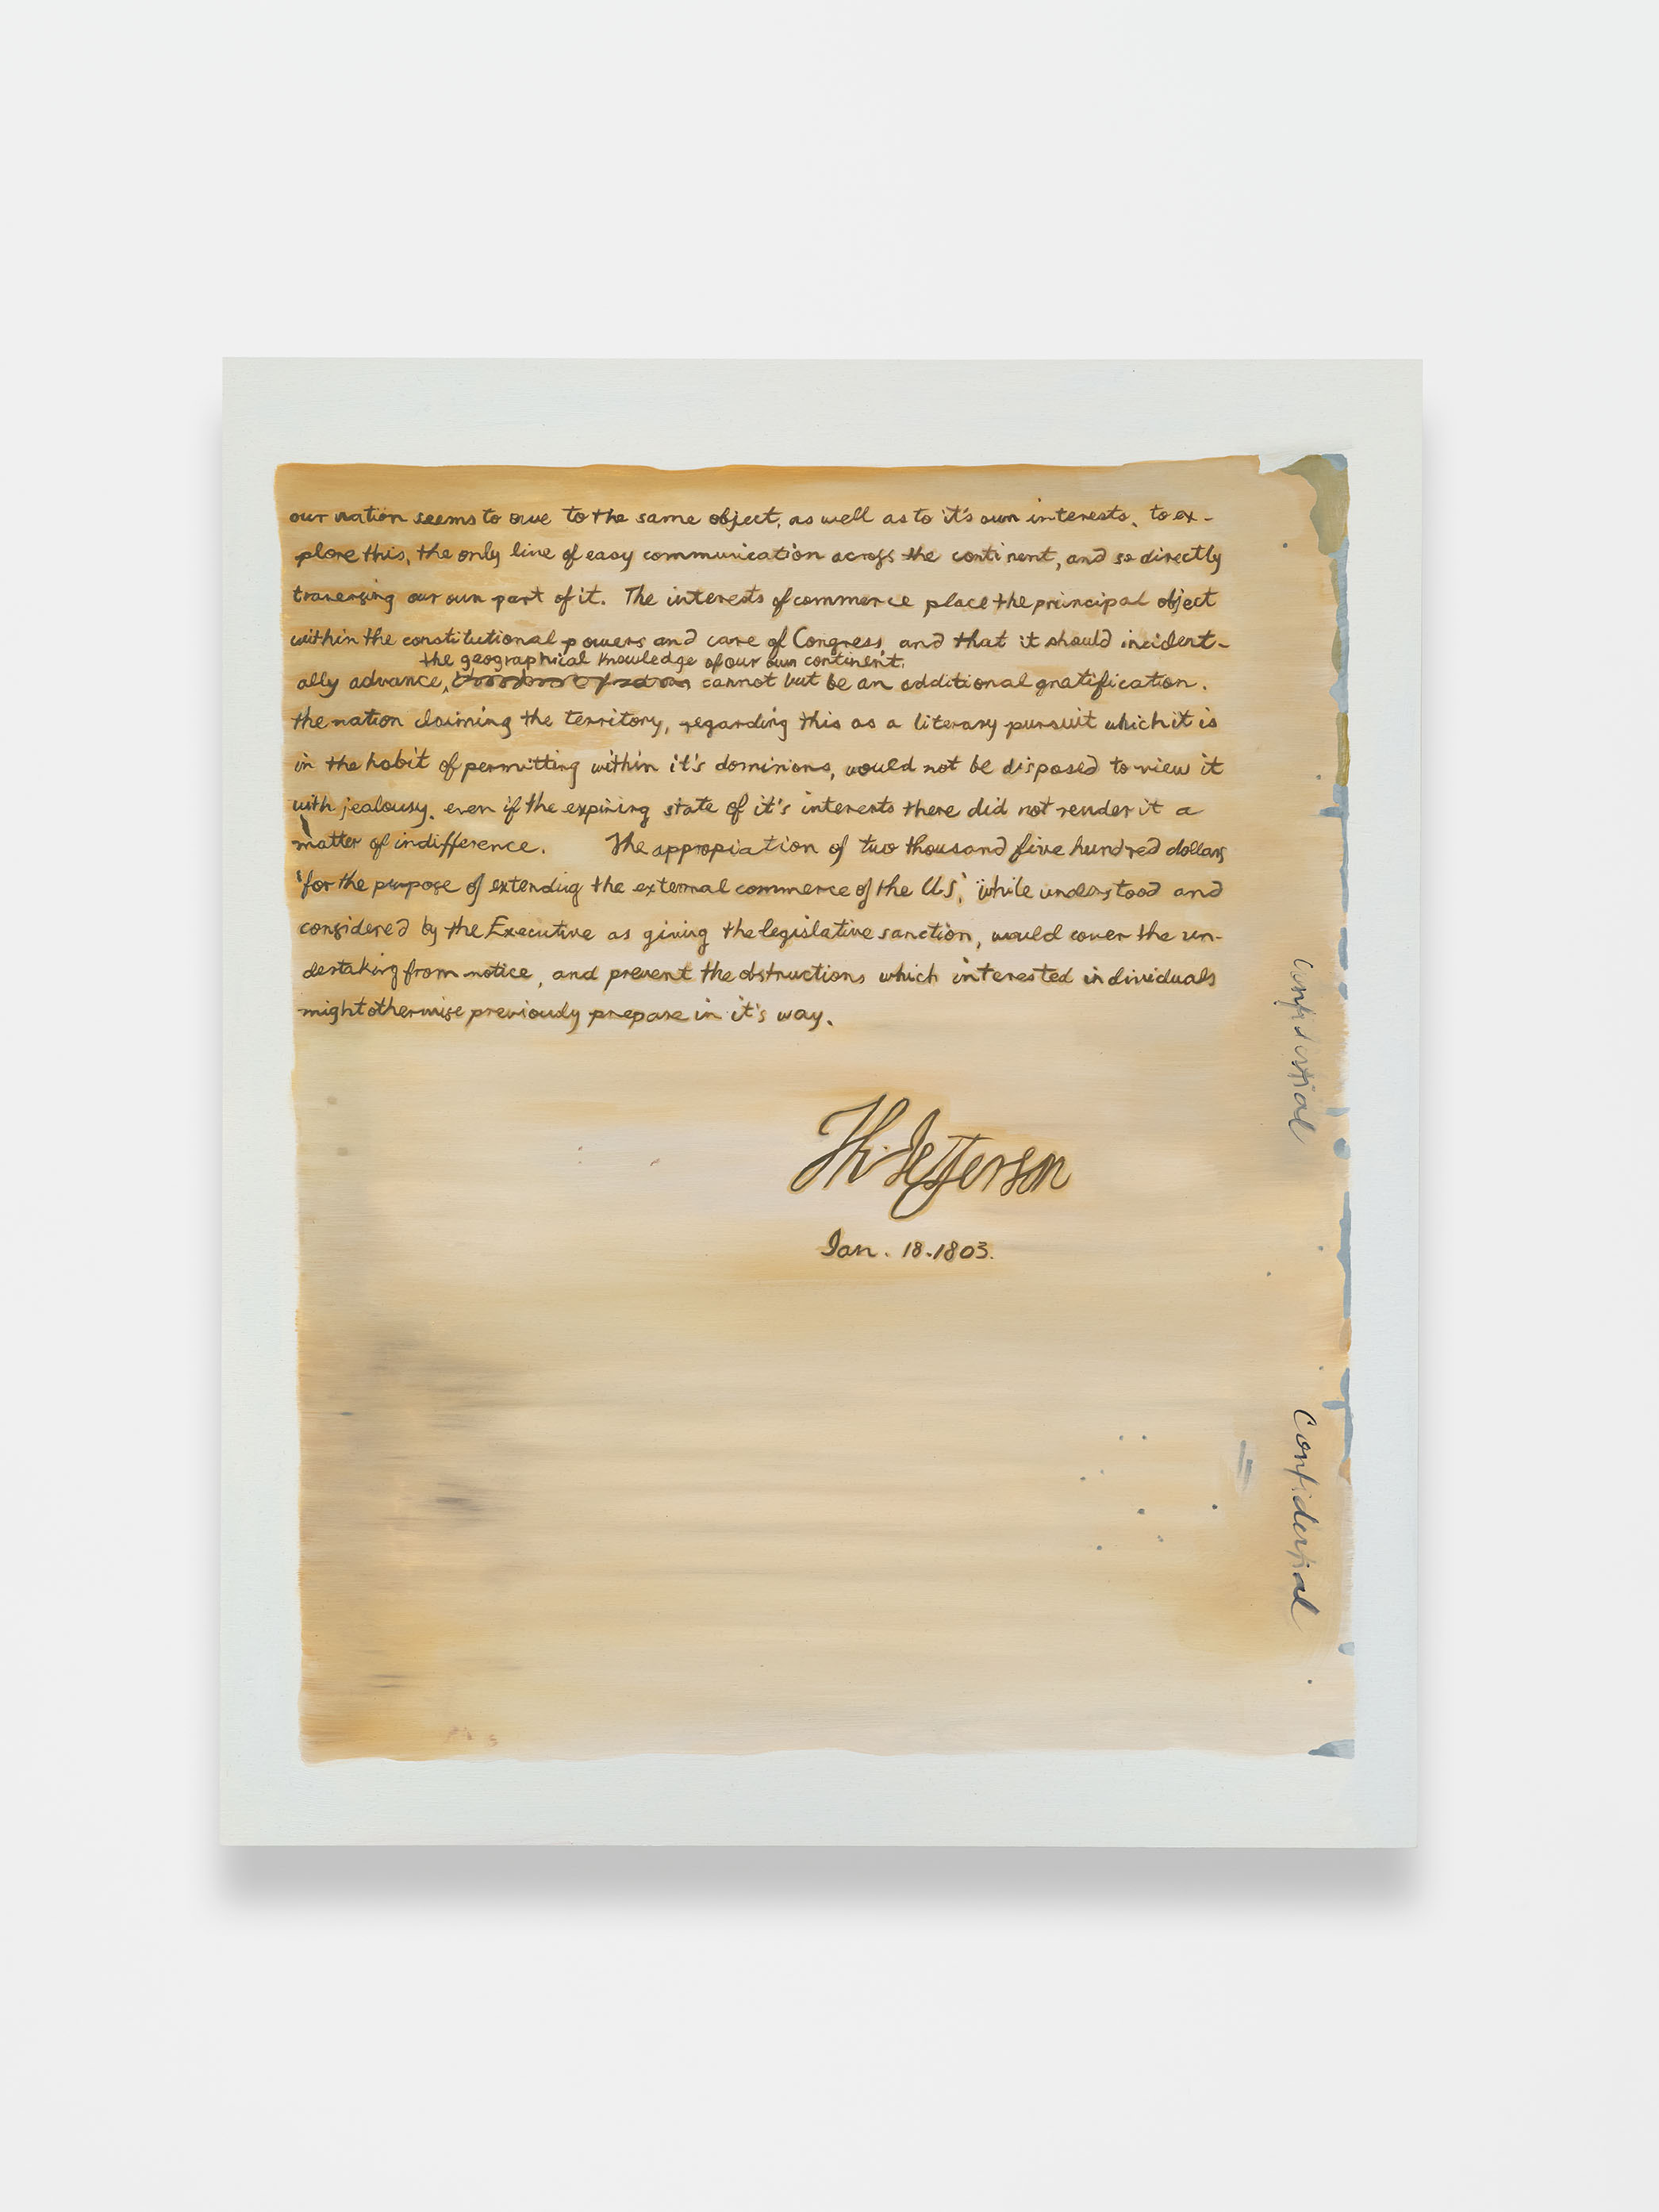 our nation seems to owe to the same object, as well as to it's own interests, to ex-
plore this, the only line of easy communication across the continent, and so directly
traversing our own part of it. The interests of commerce place the principal object
within the constitutional powers and care of Congress, and that it should incident-
the geographical knowledge of our own continent.
ally advance, cannot but be an additional gratification.
the nation claiming the territory, regarding this as a literary pursuit which it is
in the habit of permitting within it's dominions, would not be disposed to view it
with jealousy, even if the expiring state of it's interests there did not render it a
matter of indifference. The appropiation of two thousand five hundred dollars
'for the purpose of extending the external commerce of the US,' while understood and
considered by the Executive as giving the legislative sanction, would cover the un-
dertaking from notice, and prevent the obstructions which interested individuals
might otherwise previously prepare in it's way.
Th. Jefferson
Jan. 18. 1803.
Confidential
Confidential